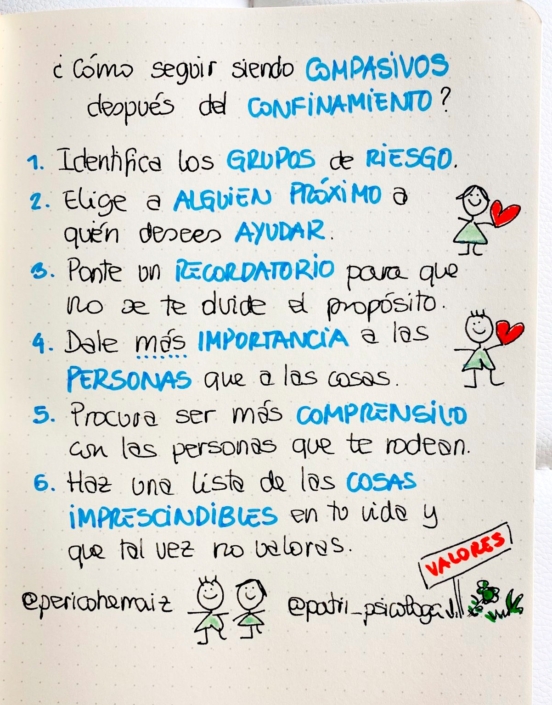 ¿Cómo seguir siendo COMPASIVOS
después del CONFINAMIENTO?
1. Identifica los GRUPOS de RIESGO.
2. Elige a ALGUIEN PRÓXIMO a
quién desees AYUDAR.
3. Ponte un RECORDATORIO para que
no se te olvide el propósito.
4. Dale más IMPORTANCIA a las
PERSONAS que a las cosas.
5. Procura ser más COMPRENSIVO
con las personas que te rodean.
6. Haz una lista de las COSAS
IMPRESCINDIBLES en tu vida y
que tal vez no valoras.
VALORES
@pericoherraiz @patri_psicologa